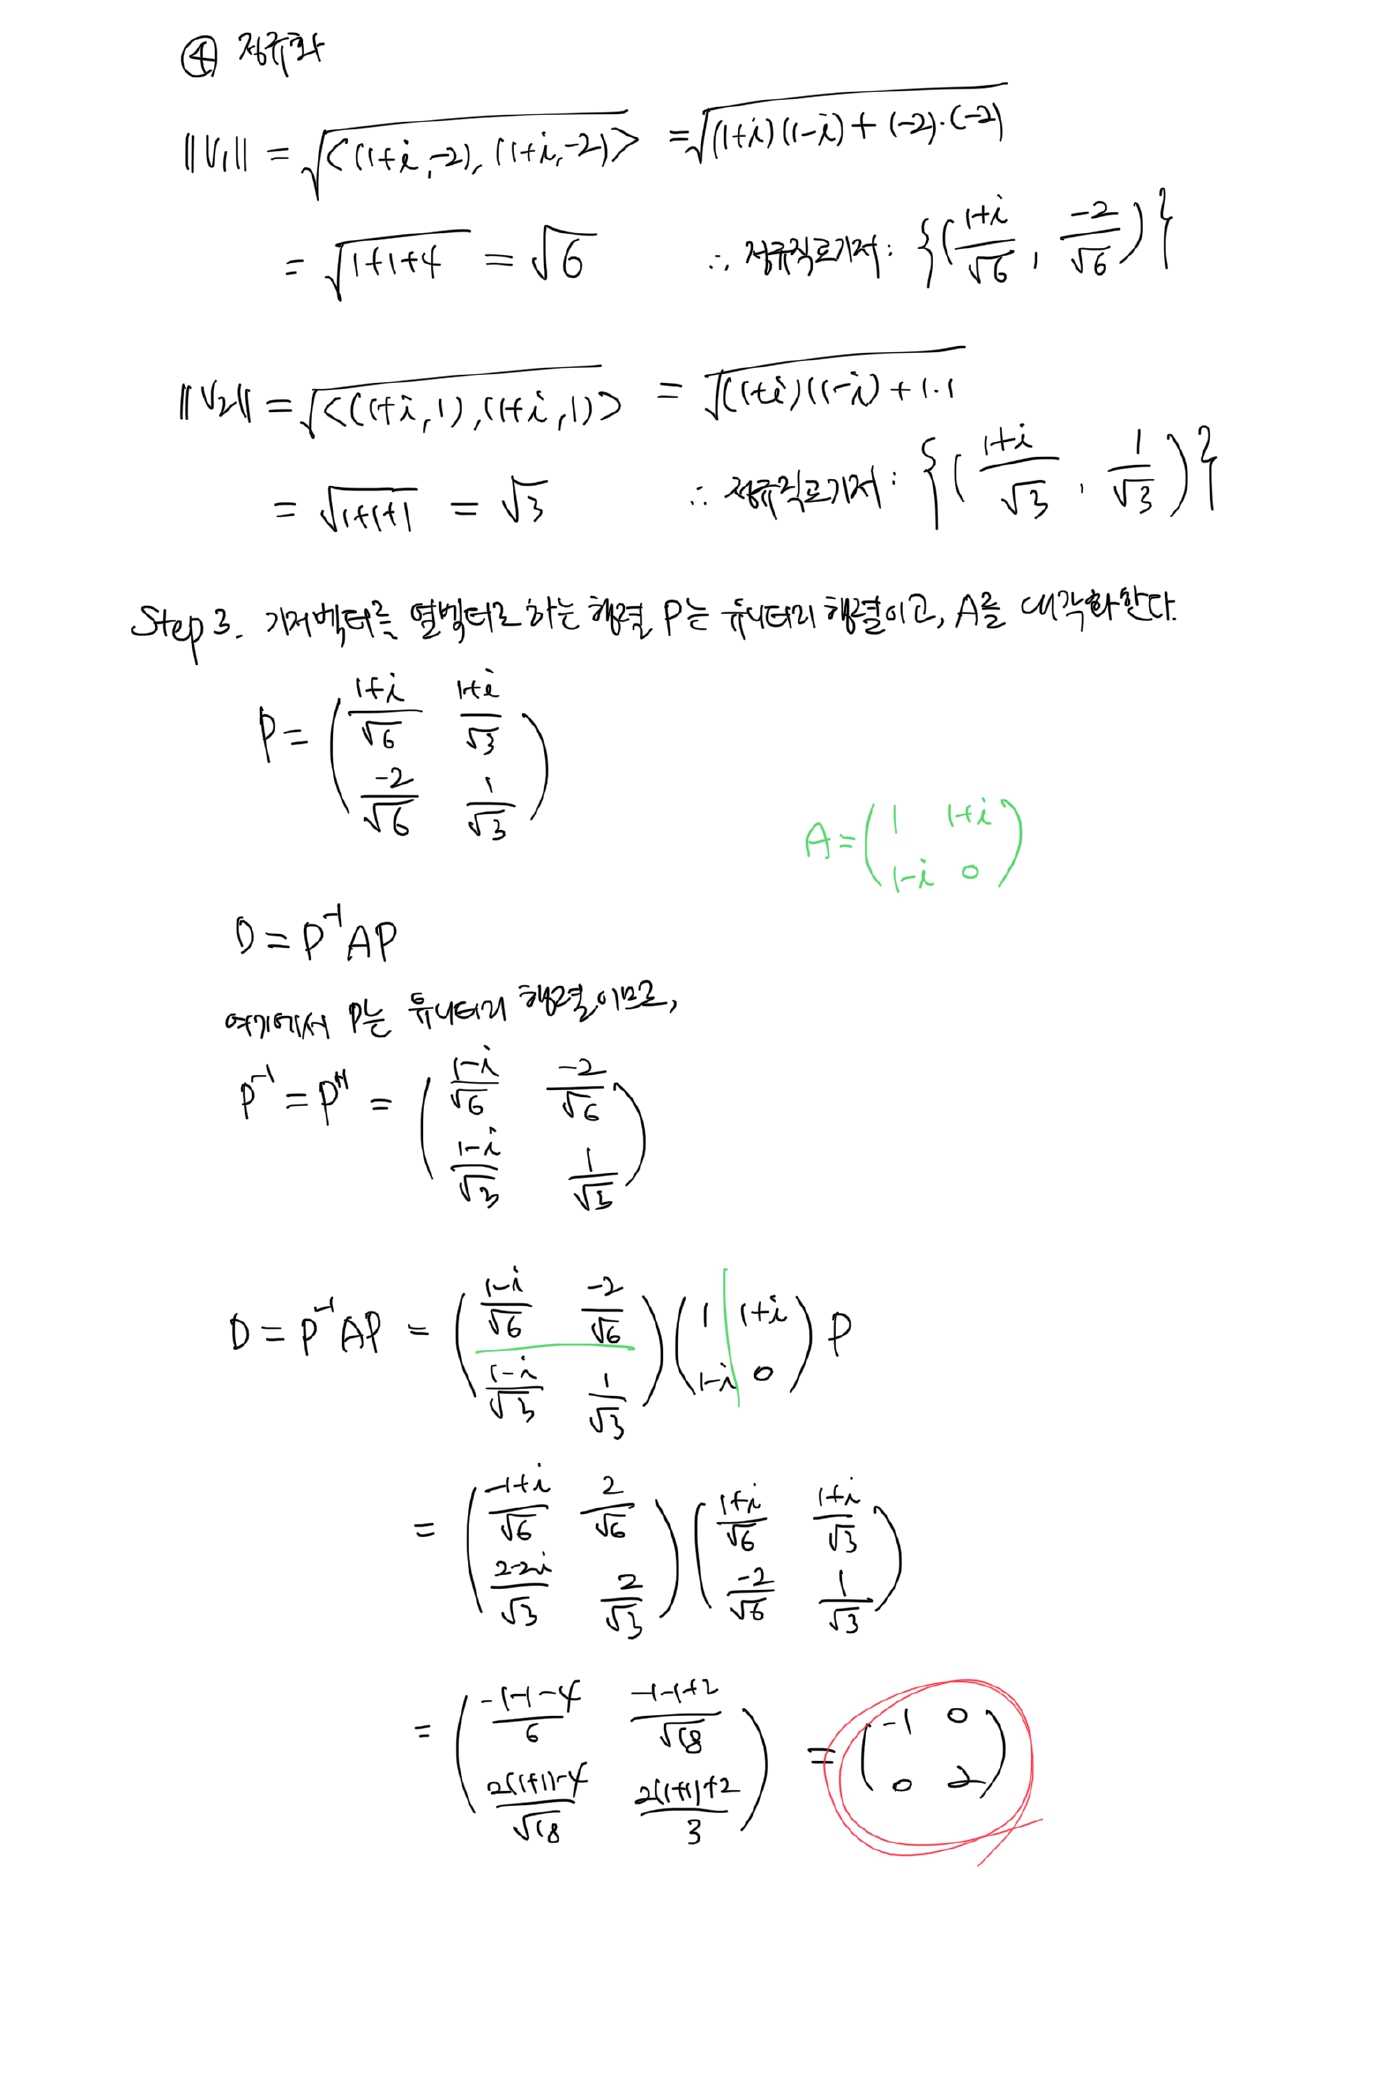 ④ 정규화
||V₁|| = √<(1+i,-2), (1+i,-2)> = √(1+i)(1-i)+(-2)·(-2)
= √1+1+4 = √6 ∴ 정규직교기저: {(1+i/√6, -2/√6)}
||V₂|| = √<(1+i,1),(1+i,1)> = √(1+i)(1-i)+1·1
= √1+1+1 = √3 ∴ 정규직교기저: {(1+i/√3, 1/√3)}
Step 3. 기저벡터를 열벡터로 하는 행렬 P는 유니터리 행렬이고, A를 대각화한다.
P = (1+i/√6 1+i/√3
-2/√6 1/√3)
A = (1 1+i
1-i 0)
D = P⁻¹AP
여기에서 P는 유니터리 행렬이므로,
P⁻¹ = Pᴴ = (1-i/√6 -2/√6
1-i/√3 1/√3)
D = P⁻¹AP = (1-i/√6 -2/√6
1-i/√3 1/√3) (1 1+i
1-i 0) P
= (-1+i/√6 2/√6
2-2i/√3 2/√3) (1+i/√6 1+i/√3
-2/√6 1/√3)
= (-1-1-4/6 -1-1+2/√18
2(1+1)-4/√18 2(1+1)+2/3) = (-1 0
0 2)